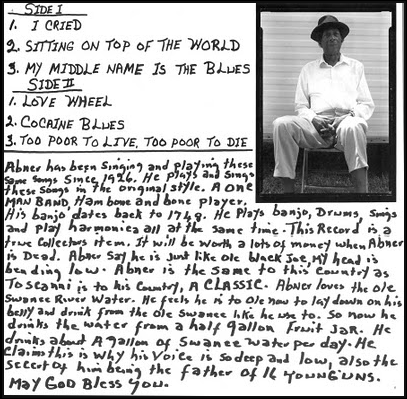 SIDE I
1. I CRIED
2. SITTING ON TOP OF THE WORLD
3. MY MIDDLE NAME IS THE BLUES
SIDE II
1. LOVE WHEEL
2. COCAINE BLUES
3. TOO POOR TO LIVE, TOO POOR TO DIE
Abner has been Singing and playing these
same songs Since 1926. He plays and Sings
these Songs in the original style. A ONE
MAN BAND, Ham bone and bone player.
His banjo dates back to 1748. He Plays banjo, Drums, Sings
and Play harmonica all at the same time. This Record is a
true Collectors item. It will be worth a lots of money when Abner
is Dead. Abner Say he is Just like ole black Joe, My head is
bending low. Abner is the Same to this Country as
Toscanni is to his Country, A CLASSIC. Abner loves the ole
Swanee River Water. He feels he is to Ole now to lay down on his
belly and drink from the ole Swanee like he use to. So now he
drinks the water from a half gallon Fruit Jar. He
drinks about A gallon of Swanee Water per day. He
Claims this is why his Voice is so deep and low, also the
secert of him being the father of 16 YOUNGUNS.
May GOD Bless You.